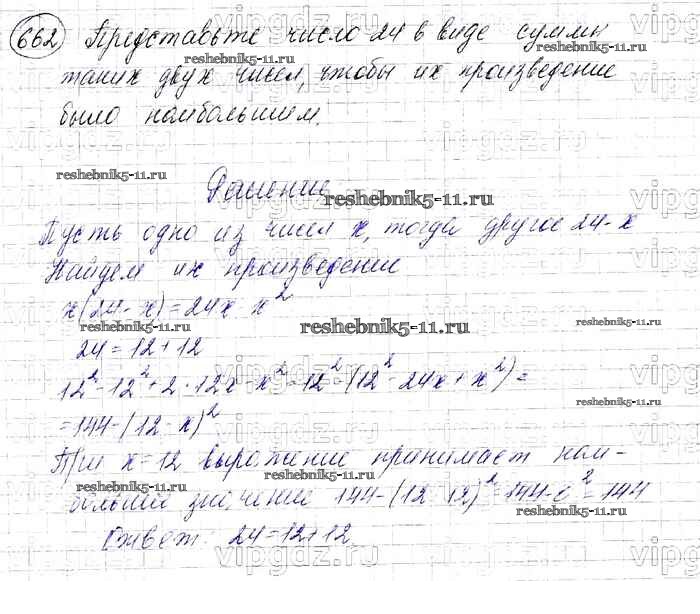 662 Представьте число 24 в виде суммы
таких двух чисел, чтобы их произведение
было наибольшем.
Решение
Пусть одно из чисел x, тогда другое 24-x
Найдем их произведение
x(24-x)=24x x²
24=12+12
12²-12²+2·12x-x²=12²-(12²-24x+x²)=
=144-(12 x)²
При x=12 выражение принимает наи-
больший значение 144-(12 12)²=144-0²=144
Ответ: 24=12+12.
reshebnik5-11.ru
vipgdz.ru